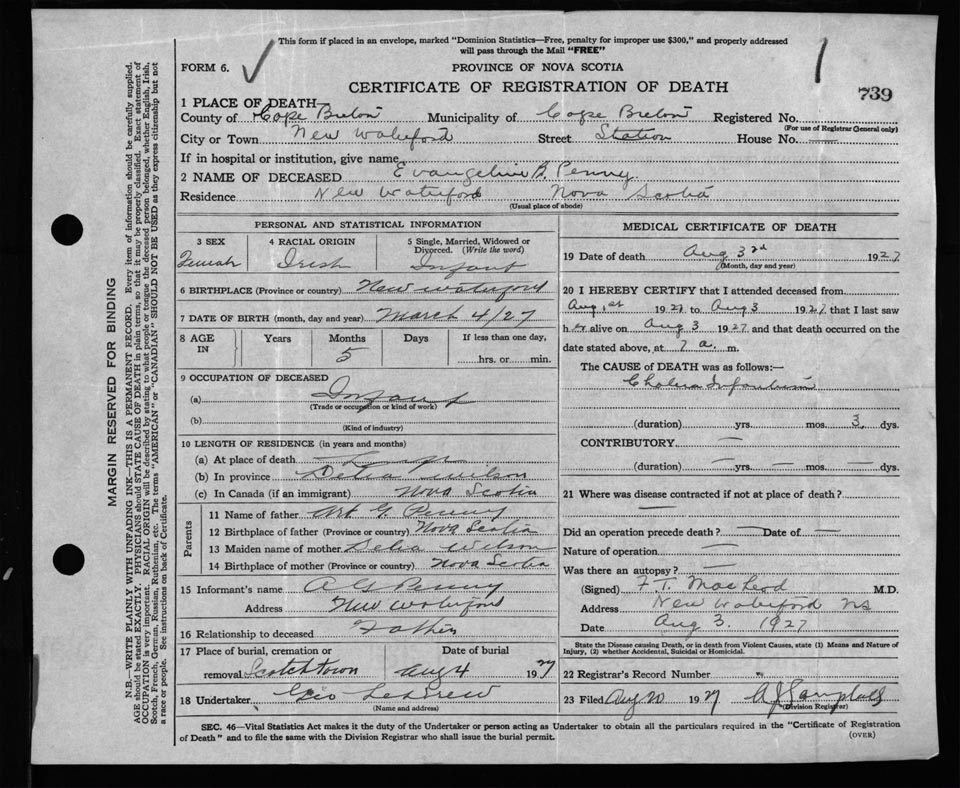 This form if placed in an envelope, marked "Dominion Statistics—Free, penalty for improper use $300," and properly addressed
will pass through the Mail "FREE"
FORM 6.
PROVINCE OF NOVA SCOTIA
CERTIFICATE OF REGISTRATION OF DEATH
739
1 PLACE OF DEATH—
County of Cape Breton Municipality of Cape Breton Registered No.
(For use of Registrar General only)
City or Town New Waterford Street Station House No. —
If in hospital or institution, give name
2 NAME OF DECEASED Evangeline B. Penny
Residence New Waterford Nova Scotia
(Usual place of abode)
PERSONAL AND STATISTICAL INFORMATION
3 SEX 4 RACIAL ORIGIN 5 Single, Married, Widowed or Divorced. (Write the word)
Female Irish Infant
6 BIRTHPLACE (Province or country) New Waterford
7 DATE OF BIRTH (month, day and year) March 4/27
8 AGE IN Years Months Days If less than one day,
5 hrs. or min.
9 OCCUPATION OF DECEASED
(a) Infant
(Trade or occupation or kind of work)
(b)
(Kind of industry)
10 LENGTH OF RESIDENCE (in years and months)
(a) At place of death
(b) In province Delia Wilson
(c) In Canada (if an immigrant) Nova Scotia
Parents
11 Name of father Art G. Penny
12 Birthplace of father (Province or country) Nova Scotia
13 Maiden name of mother Delia Wilson
14 Birthplace of mother (Province or country) Nova Scotia
15 Informant's name A G Penny
Address New Waterford
16 Relationship to deceased Father
17 Place of burial, cremation or removal Scotchtown Date of burial Aug 4 1927
18 Undertaker Geo
(Name and address)
MEDICAL CERTIFICATE OF DEATH
19 Date of death Aug 3rd 1927
(Month, day and year)
20 I HEREBY CERTIFY that I attended deceased from
Aug 1st 1927 to Aug 3 1927, that I last saw
h er alive on Aug 3 1927, and that death occurred on the
date stated above, at 7 a. m.
The CAUSE of DEATH was as follows:—
Cholera Infantum
(duration) yrs. mos. 3 dys.
CONTRIBUTORY —
(duration) — yrs. — mos. — dys.
21 Where was disease contracted if not at place of death?
—
Did an operation precede death? — Date of —
Nature of operation —
Was there an autopsy? —
(Signed) F. T. MacLeod M.D.
Address New Waterford NS
Date Aug 3. 1927
State the Disease causing Death, or in death from Violent Causes, state (1) Means and Nature of
Injury, (2) whether Accidental, Suicidal or Homicidal.
22 Registrar's Record Number
23 Filed Aug 20 1927 A J Campbell
(Division Registrar)
SEC. 46—Vital Statistics Act makes it the duty of the Undertaker or person acting as Undertaker to obtain all the particulars required in the "Certificate of Registration
of Death" and to file the same with the Division Registrar who shall issue the burial permit.
(OVER)
MARGIN RESERVED FOR BINDING
N.B.—WRITE PLAINLY WITH UNFADING INK—THIS IS A PERMANENT RECORD. Every item of information should be carefully supplied.
AGE should be stated EXACTLY. PHYSICIANS should STATE CAUSE OF DEATH in plain terms, so that it may be properly classified. Exact statement of
OCCUPATION is very important. RACIAL ORIGIN will be described by stating to what people or tongue the deceased person belonged, whether English, Irish,
Scotch, French, German, Russian, Ruthenian, etc. The terms "AMERICAN" or "CANADIAN" SHOULD NOT BE USED as they express citizenship but not
a race or people. See instructions on back of Certificate.